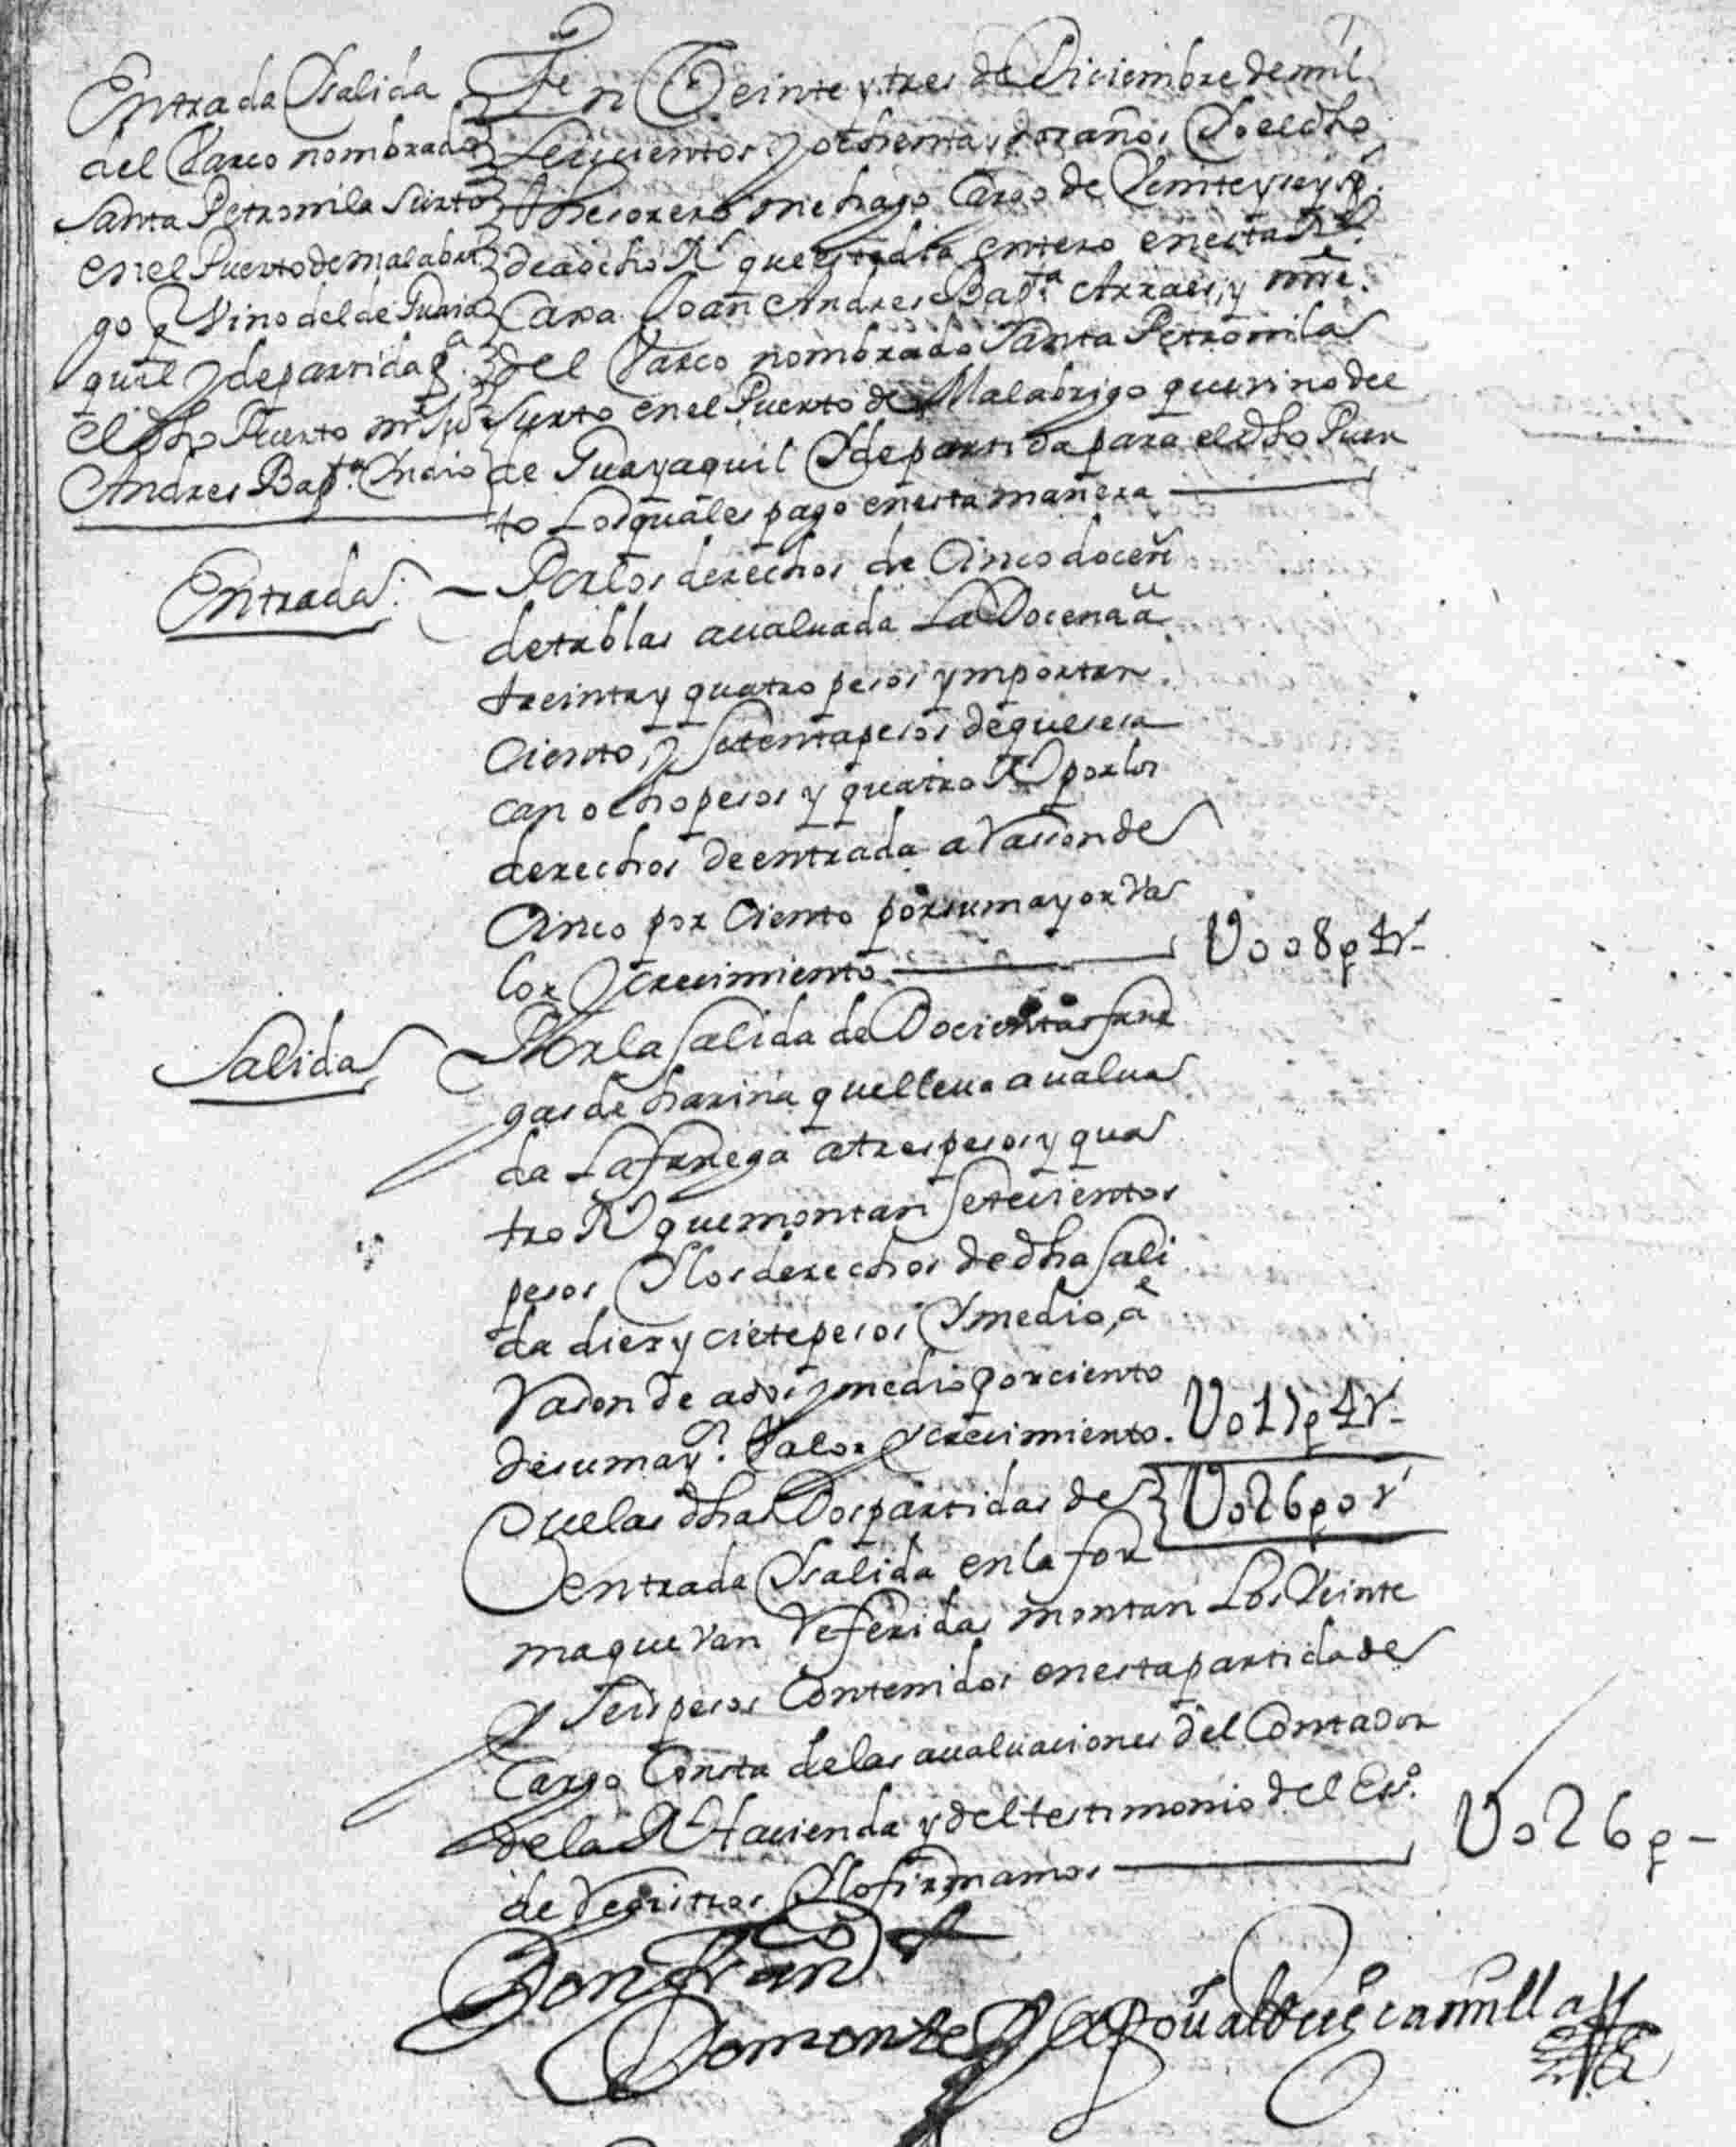 Entrada Y salida
del Varco nombrado
Santa Petronila Surto
en el Puerto de malabri
go q Vino del de Guaia
quil y de partida pª
el dho Puerto mre Su
Andres Bapta Yndio
En Veinte y tres de Diciembre de mil
Seiscientos y ochenta y dos años Yo el dho
thesorero me hago Cargo de Veinte y seis ps
de a ocho Rs que este dia entero en esta Rl
Caxa Joan Andres Bapta Arraes, y mre
del Varco nombrado Santa Petronila
Surto en el Puerto de Malabrigo que vino del
de Guayaquil Y de partida para el dho Puer
to Los quales pago en esta manera
Entrada
Por los derechos de Cinco docens
de tablas aualuada La Docena a
treinta y quatro pesos y mportan
Ciento, y Setenta pesos de que se sa
can ocho pesos y quatro Rs por los
derechos de entrada a Vasson de
Cinco por Ciento por su mayor Va
lor Y crecimiento
U008p4r
Salida
Por la Salida de Docientas fane
gas de harina que lleua aualua
da La fanega a tres pesos y qua
tro Rs que montan Setecientos
pesos Y los derechos de dha Sali
da diez y ciete pesos Y medio, a
Vason de a dos y medio por ciento
de su mayr Valor Y crecimiento.
U017p4r
Que las dhas Dos partidas de
U026p0r
entrada Y salida en la for
ma que van Referidas montan Los Veinte
y Seis pesos Contenidos en esta partida de
Cargo Consta de las aualuaciones del Contador
de la Rl Hacienda y del testimonio del Esno
de Registros Y lo firmamos
U026p
Don Franco